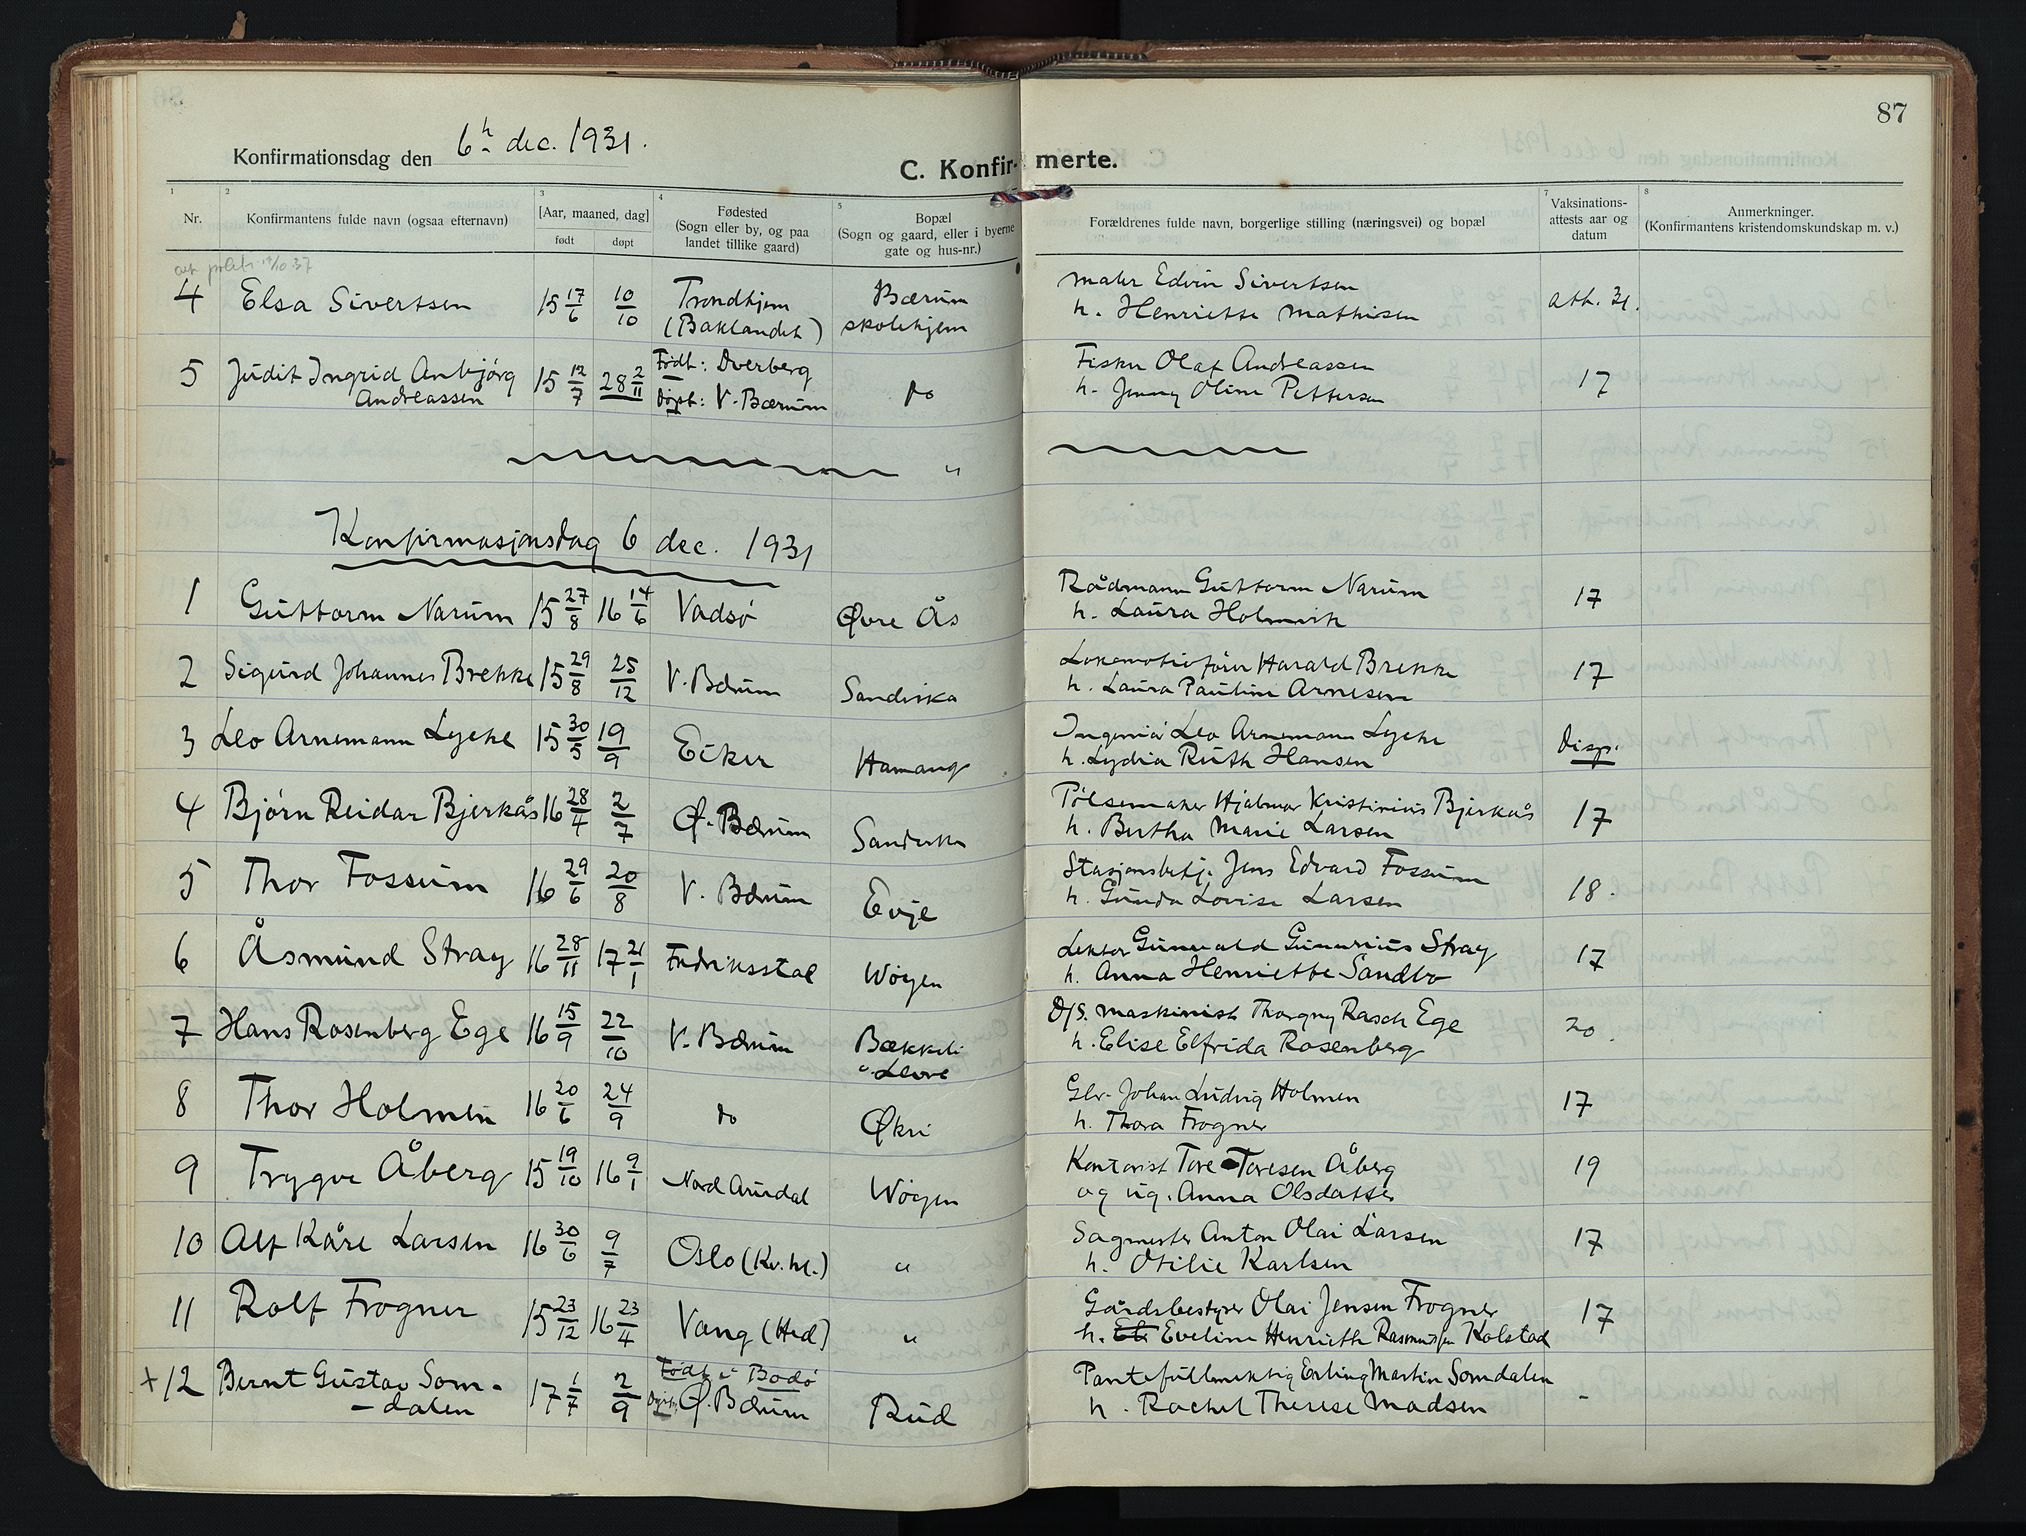 87
Konfirmationsdag den 6te dec. 1931.
C. Konfirmerte.
1 2 3 4 5 7 8
Nr. Konfirmantens fulde navn (ogsaa efternavn) [Aar, maaned, dag] født døpt Fødested (Sogn eller by, og paa landet tillike gaard) Bopæl (Sogn og gaard, eller i byerne gate og hus-nr.) Forældrenes fulde navn, borgerlige stilling (næringsvei) og bopæl Vaksinations-attests aar og datum Anmerkninger. (Konfirmantens kristendomskundskap m. v.)
4 Elsa Sivertsen 15 17/6 10/10 Trondhjem (Baklandet) Bærum skolehjem Maler Edvin Sivertsen
h. Henriette Mathisen att. 31.
5 Judit Ingrid Anbjørg Andreassen 15 12/7 28 2/11 Født: Dverberg
Døpt: V. Bærum do Fisker Olaf Andreassen
h. Jenny Oline Pettersen 17
"
Konfirmasjonsdag 6 dec. 1931
1 Guttorm Narum 15 27/8 16 14/6 Vadsø Øvre Ås Rådmann Guttorm Narum
h. Laura Holmvik 17
2 Sigurd Johannes Brekke 15 29/8 25/12 V. Bærum Sandvika Lokomotivfører Harald Brekke
h. Laura Pauline Arnesen 17
3 Leo Arnemann Lycke 15 30/5 19/9 Eiker Hamang Ingeniør Leo Arnemann Lycke
h. Lydia Ruth Hansen Disp.
4 Bjørn Reidar Bjerkås 16 28/4 2/7 Ø. Bærum Sandvika Pølsemaker Hjalmar Kristinius Bjerkås
h. Bertha Marie Larsen 17
5 Thor Fossum 16 29/6 20/8 V. Bærum Evje Stasjonsbetj. Jens Edvard Fossum
h. Gunda Lovise Larsen 18.
6 Åsmund Stray 16 28/11 17 21/1 Fredriksstad Wøyen Lektor Gunvald Gunerius Stray
h. Anna Henriette Sandbo 17
7 Hans Rosenberg Ege 16 15/9 22/10 V. Bærum Bækkeli
Løvre D/S. maskinist Thorgny Rasch Ege
h. Elise Elfrida Rosenberg 20.
8 Thor Holmen 16 20/6 24/9 do Økri Gbr. Johan Ludvig Holmen
h. Thora Frogner 17
9 Trygve Åberg 15 19/10 16 9/1 Nord Aurdal Wøyen Kontorist Tore Toresen Åberg
og ug. Anna Olsdatter 19
10 Alf Kåre Larsen 16 30/6 9/7 Oslo (Kv. hl.) " Sagmester Anton Olai Larsen
h. Otilie Karlsen 17
11 Rolf Frogner 15 23/12 16 23/4 Vang (Hed) " Gårdsbestyrer Olai Jensen Frogner
h. Eveline Henriette Rasmussen Kolstad 17
+ 12 Bernt Gustav Som-
-dalen 17 1/7 2/9 Født i Bodø
Døpt: Ø. Bærum Rud Pantefullmektig Erling Martin Somdalen
h. Rachel Therese Madsen -